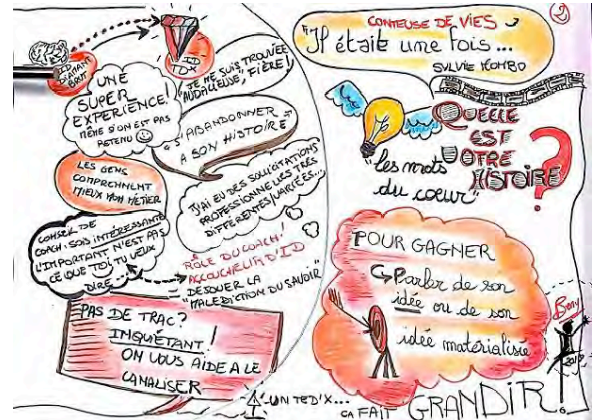 ID
DIAMANT
BRUT
ID
TDX
UNE
SUPER
EXPERIENCE!
MÊME SI ON EST PAS
RETENU
"JE ME SUIS TROUVÉE
AUDACIEUSE, FIÈRE!"
"S'ABANDONNER
A SON HISTOIRE"
LES GENS
COMPRENNENT
MIEUX MON MÉTIER
J'AI EU DES SOLLICITATIONS
PROFESSIONNELLES TRÈS
DIFFÉRENTES/VARIÉES...
CONSEIL DE
COACH: SOIS INTÉRESSANTE
L'IMPORTANT N'EST PAS
CE QUE TOI, TU VEUX
DIRE...
RÔLE DU COACH!
ACCOUCHEUR D'ID
DÉJOUER LA
"MALÉDICTION DU SAVOIR"
PAS DE TRAC?
INQUIÉTANT!
ON VOUS AIDE A LE
CANALISER
UN TED'X...
ÇA FAIT GRANDIR!
2
CONTEUSE DE VIES
"Il était une fois...
SYLVIE MOMBO
QUELLE
EST
VOTRE
HISTOIRE
?
"les mots
du cœur"
POUR GAGNER
Parler de son
idée ou de son
idée matérialisée